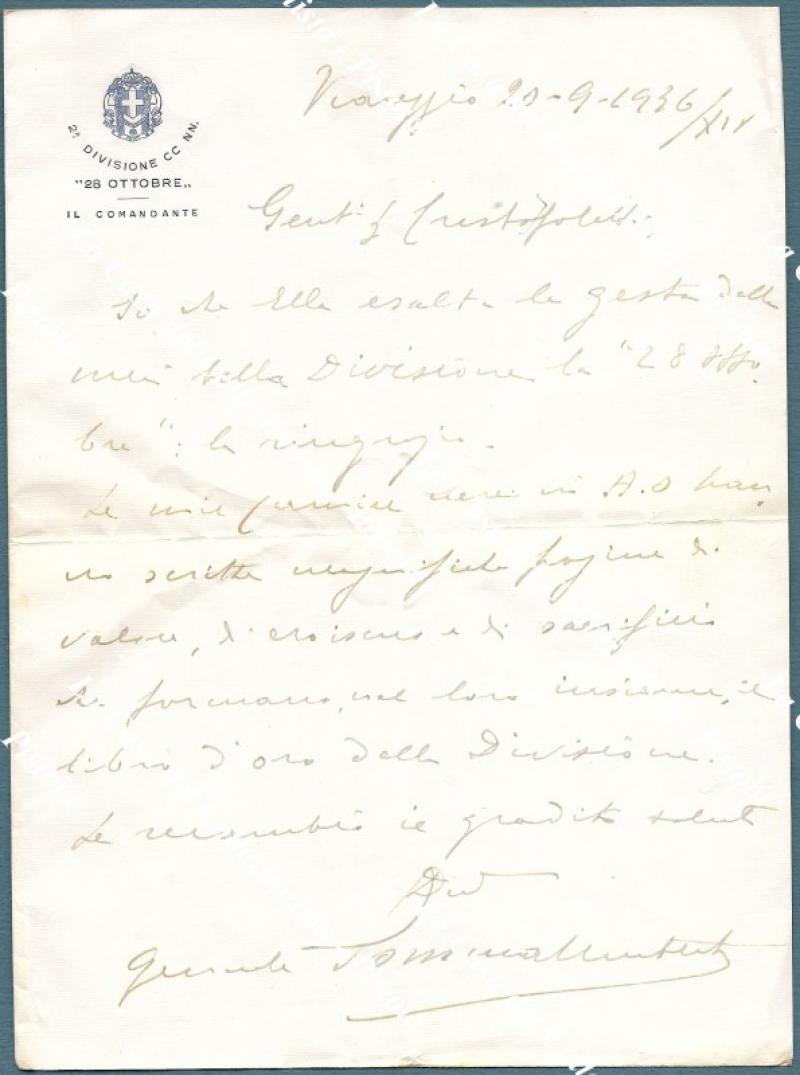 2ª DIVISIONE CC. NN.
"28 OTTOBRE"
IL COMANDANTE
Viareggio 20-9-1936/XIV
Gent. Cristofoletti.
So che Ella esalta le gesta della
mia bella Divisione la "28 Otto.
bre": la ringrazio.
Le mie camicie nere in A.O han.
no scritto magnifiche pagine di
valore, di eroismo e di sacrificio
che formano, nel loro insieme, il
libro d'oro della Divisione.
Le ricambio il gradito saluto
Generale